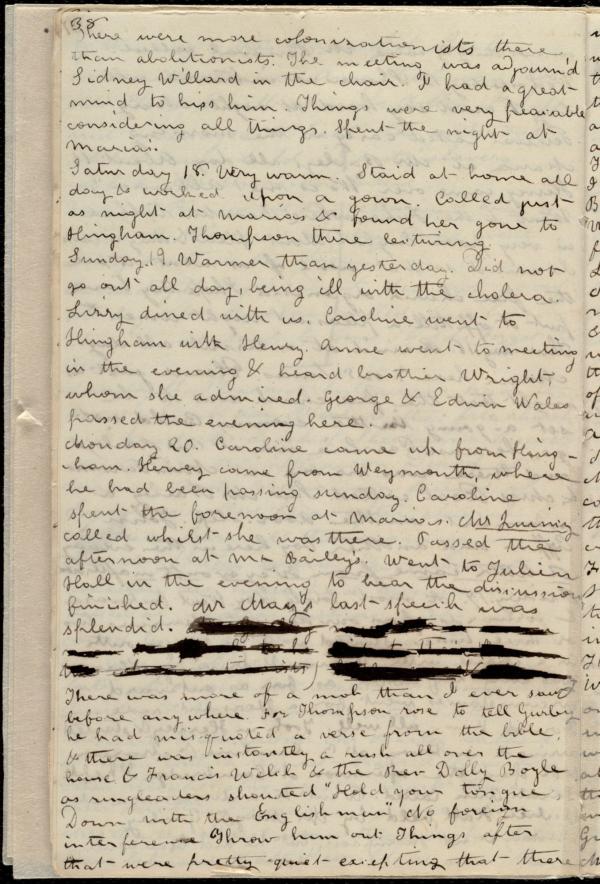 38
There were more colonizationists there
than abolitionists. The meeting was adjourn'd
Sidney Willard in the chair. I had a great
mind to hiss him. Things were very peaceable
considering all things. Spent the night at
Maria's.
Saturday 18. Very warm. Staid at home all
day & worked upon a gown. Called just
as night at Marias & found her gone to
Hingham. Thompson there lecturing.
Sunday. 19. Warmer than yesterday. Did not
go out all day, being ill with the cholera.
Lizzy dined with us. Caroline went to
Hingham with Henry. Anne went to meeting
in the evening & heard brother Wright,
whom she admired. George & Edwin Wales
passed the evening here.
Monday 20. Caroline came up from Hing-
ham. Hervey came from Weymouth, where
he had been passing sunday. Caroline
spent the forenoon at Marias. Mr Quincy
called whilst she was there. Passed the
afternoon at Mr Bailey's. Went to Julien
Hall in the evening to hear the discussion
finished. Mr May's last speech was
splendid.
There was more of a mob than I ever saw
before anywhere. For Thompson rose to tell Gurley
he had misquoted a verse from the bible,
& there was instantly a rush all over the
house & Francis Welch & the Rev Dolly Boyle
as ringleaders shouted "Hold your tongue,
Down with the Englishman" No foreign
interference Throw him out Things after
that were pretty quiet excepting that there